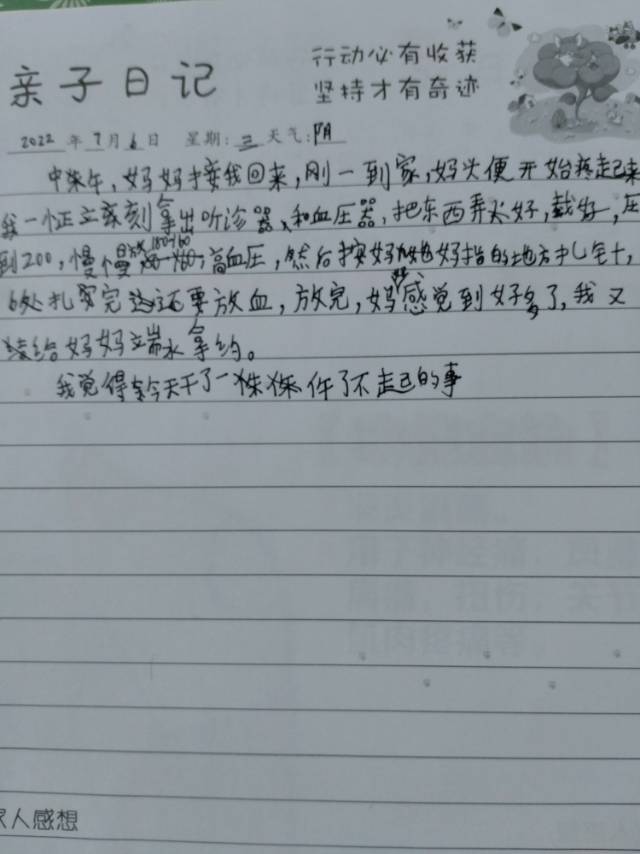 行动必有收获
亲子日记
坚持才有奇迹
2022年7月6日 星期:三 天气:阴
中午,妈妈接我回来,刚一到家,妈头便开始疼起来
我一 立刻拿出听诊器、和血压器,把东西弄好,戴好,压
到200,慢慢放 180 160 高血压,然后按妈妈指的地方扎针,
6处扎完还要放血,放完,妈妈感觉到好多了,我又
给妈妈端水拿药。
我觉得今天干了一件了不起的事
家人感想